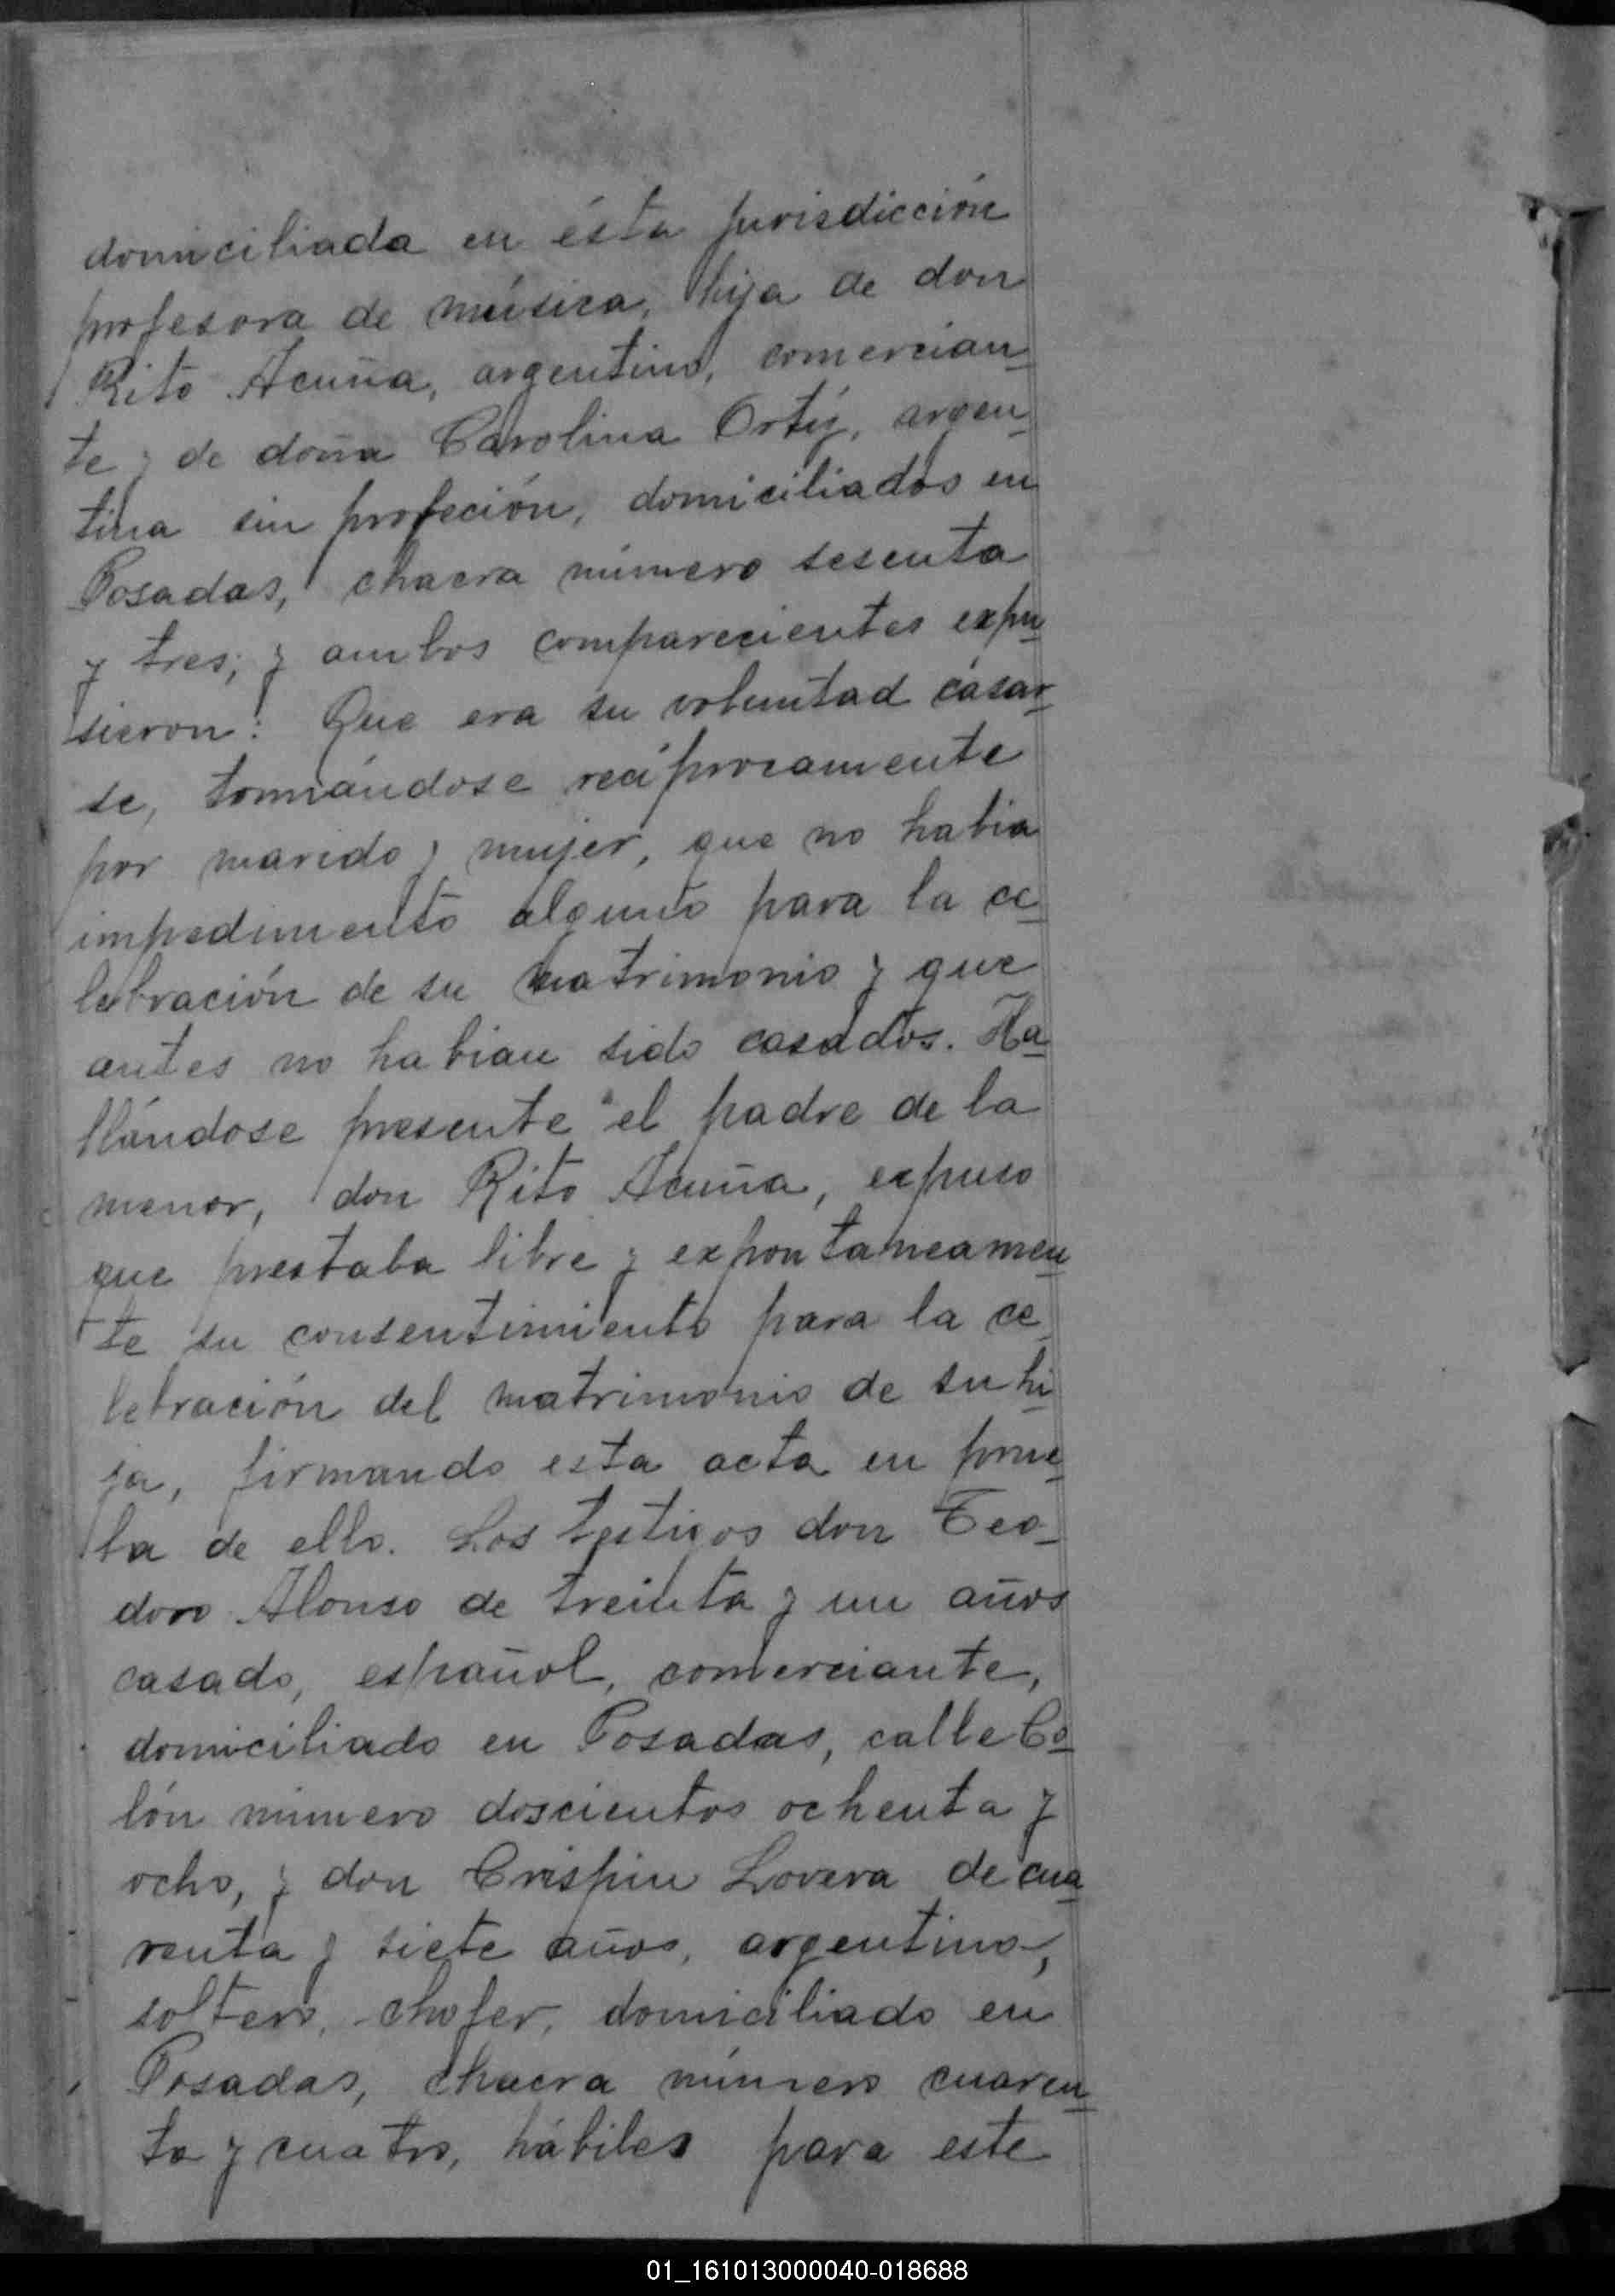 domiciliada en ésta jurisdicción
profesora de música, hija de don
Rito Acuña, argentino, comercian
te y de doña Carolina Ortíz, argen
tina sin profeción, domiciliados en
Posadas, chacra número sesenta
y tres; y ambos comparecientes expu
sieron: Que era su voluntad casar
se, tomándose recíprocamente
por marido y mujer, que no habia
impedimento alguno para la ce
lebración de su matrimonio y que
antes no habian sido casados. Ha
llándose presente el padre de la
menor, don Rito Acuña, expuso
que prestaba libre y expontaneamen
te su consentimiento para la ce
lebración del matrimonio de su hi
ja, firmando esta acta en prue
ba de ello. Los testigos don Teo
doro Alonso de treinta y un años
casado, español, comerciante,
domiciliado en Posadas, calle Co
lón número doscientos ochenta y
ocho, y don Crispin Lovera de cua
renta y siete años, argentino,
soltero, chofer, domiciliado en
Posadas, chacra número cuaren
ta y cuatro, hábiles para este
01_161013000040-018688